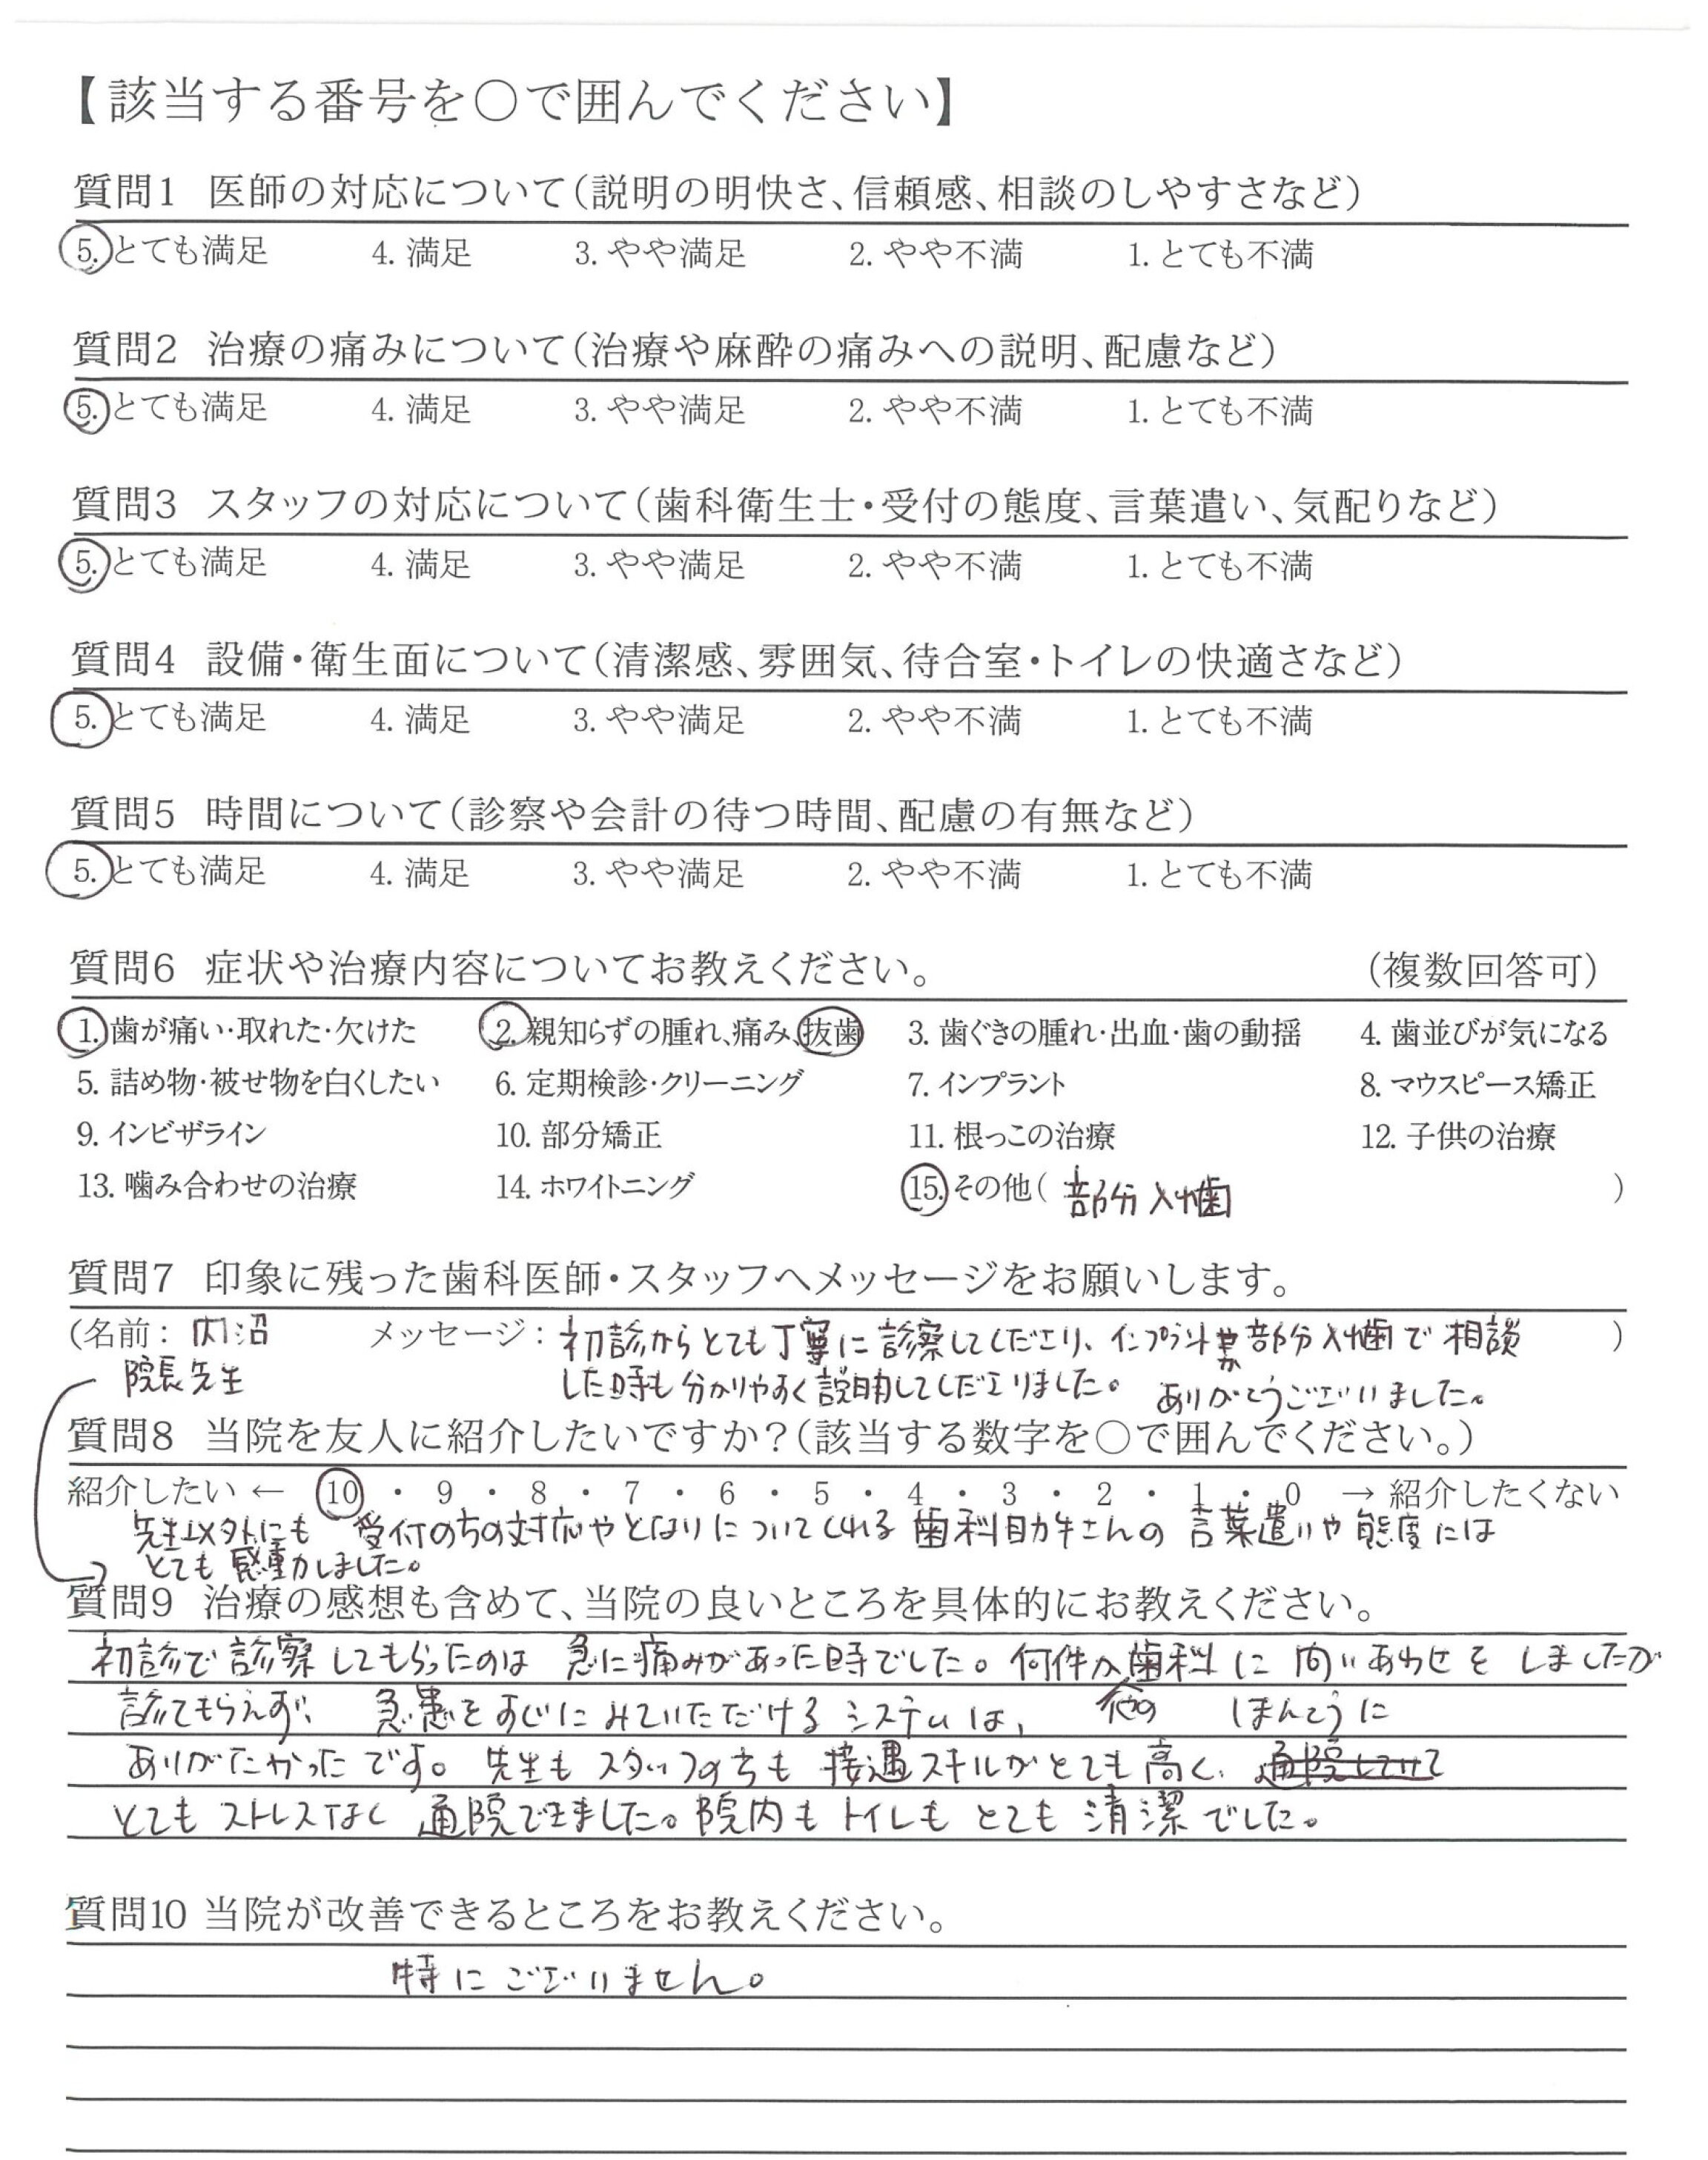 【該当する番号を○で囲んでください】
質問1 医師の対応について（説明の明快さ、信頼感、相談のしやすさなど）
5. とても満足 4. 満足 3. やや満足 2. やや不満 1. とても不満
質問2 治療の痛みについて（治療や麻酔の痛みへの説明、配慮など）
5. とても満足 4. 満足 3. やや満足 2. やや不満 1. とても不満
質問3 スタッフの対応について（歯科衛生士・受付の態度、言葉遣い、気配りなど）
5. とても満足 4. 満足 3. やや満足 2. やや不満 1. とても不満
質問4 設備・衛生面について（清潔感、雰囲気、待合室・トイレの快適さなど）
5. とても満足 4. 満足 3. やや満足 2. やや不満 1. とても不満
質問5 時間について（診察や会計の待つ時間、配慮の有無など）
5. とても満足 4. 満足 3. やや満足 2. やや不満 1. とても不満
質問6 症状や治療内容についてお教えください。 （複数回答可）
1. 歯が痛い・取れた・欠けた 2. 親知らずの腫れ、痛み、抜歯 3. 歯ぐきの腫れ・出血・歯の動揺 4. 歯並びが気になる
5. 詰め物・被せ物を白くしたい 6. 定期検診・クリーニング 7. インプラント 8. マウスピース矯正
9. インビザライン 10. 部分矯正 11. 根っこの治療 12. 子供の治療
13. 噛み合わせの治療 14. ホワイトニング 15. その他（ 部分入れ歯 ）
質問7 印象に残った歯科医師・スタッフへメッセージをお願いします。
（名前： 内沼 メッセージ： 初診からとても丁寧に診察してくださり、インプラントか部分入れ歯で相談 ）
院長先生 した時も分かりやすく説明してくださりました。 ありがとうございました。
質問8 当院を友人に紹介したいですか？（該当する数字を○で囲んでください。）
紹介したい ← 10 ・ 9 ・ 8 ・ 7 ・ 6 ・ 5 ・ 4 ・ 3 ・ 2 ・ 1 ・ 0 → 紹介したくない
先生以外にも 受付の方の対応やとなりについてくれる歯科助手さんの言葉遣いや態度には
とても感動しました。
質問9 治療の感想も含めて、当院の良いところを具体的にお教えください。
初診で診察してもらったのは 急に痛みがあった時でした。何件か他の歯科に問いあわせをしましたが
診てもらえず、 急患をすぐにみていただけるシステムは、 ほんとうに
ありがたかったです。先生もスタッフの方も接遇スキルがとても高く、通院していて
とてもストレスなく通院できました。院内もトイレもとても清潔でした。
質問10 当院が改善できるところをお教えください。
特にございません。